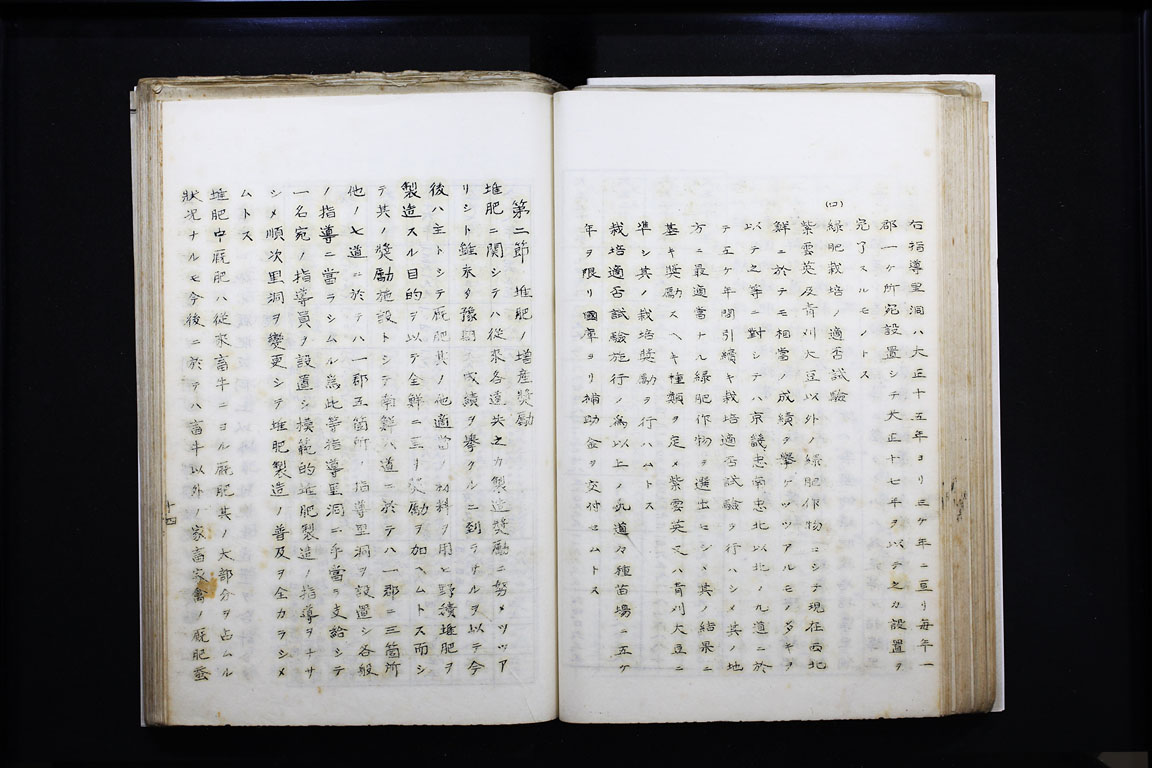 右指導里洞ハ大正十五年ヨリ三ケ年ニ亘リ毎年一
郡一ケ所宛設置シテ大正十七年ヲ以テ之カ設置ヲ
完了スルモノトス
(ロ)
緑肥栽培ノ適否試験
紫雲英及青刈大豆以外ノ緑肥作物ニシテ現在西北
鮮ニ於テモ相當ノ成績ヲ擧ケツツアルモノ多キヲ
以テ之等ニ對シテハ京畿忠南忠北以北ノ九道ニ於
テ五ケ年間引續キ栽培適否試驗ヲ行ハシメ其ノ地
方ニ最適當ナル緑肥作物ヲ選出セシメ其ノ結果ニ
基キ奬勵スヘキ種類ヲ定メ紫雲英又ハ青刈大豆ニ
準シ其ノ栽培奬勵ヲ行ハムトス
栽培適否試驗施行ノ為以上ノ九道々種苗場ニ五ケ
年ヲ限リ國庫ヨリ補助金ヲ交付セムトス
第二節 堆肥ノ増産奬勵
堆肥ニ關シテハ從來各道共之カ製造奬勵ニ努メツツア
リシト雖未タ豫期ノ成績ヲ擧クルニ到ラサルヲ以テ今
後ハ主トシテ厩肥其ノ他適當ノ材料ヲ用ヒ野積堆肥ヲ
製造スル目的ヲ以テ全鮮ニ亘リ奬勵ヲ加ヘムトス而シ
テ其ノ奬勵施設トシテ南鮮ハ道ニ於テハ一郡ニ三箇所
他ノ七道ニ於テハ一郡五箇所ノ指導里洞ヲ設置シ各般
ノ指導ニ當ラシムル爲此等指導里洞ニ手當ヲ支給シテ
一名宛ノ指導員ヲ設置シ模範的堆肥製造ノ指導ヲナサ
シメ順次里洞ヲ變更シテ堆肥製造ノ普及ヲ全カラシメ
ムトス
堆肥中厩肥ハ從來畜牛ニヨル厩肥其ノ大部分ヲ占ムル
狀況ナルモ今後ニ於テハ畜牛以外ノ家畜家禽ノ厩肥蚕
十四